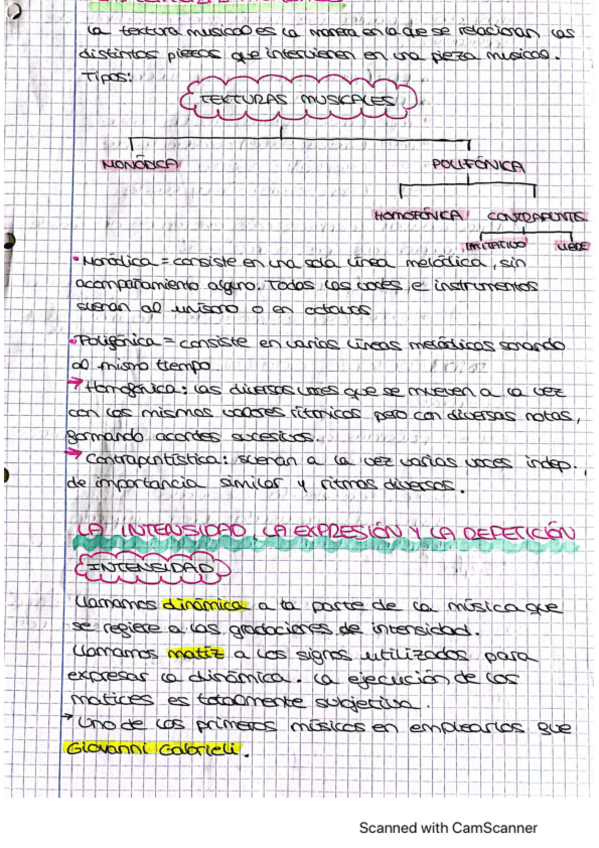 La textura musical es la manera en la que se relacionan las
distintas piezas que intervienen en una pieza musical.
Tipos:
TEXTURAS MUSICALES
MONÓDICA
POLIFÓNICA
HOMOFÓNICA
CONTRAPUNTIS.
IMITATIVO
LIBRE
• Monódica = consiste en una sola línea melódica, sin
acompañamiento alguno. Todas las voces e instrumentos
suenan al unísono o en octavas
• Polifónica = consiste en varias líneas melódicas sonando
al mismo tiempo
→ Homofónica: las diversas voces que se mueven a la vez
con los mismos valores rítmicos pero con diversas notas,
formando acordes sucesivos.
→ Contrapuntística: suenan a la vez varias voces indep.,
de importancia similar y ritmos diversos.
LA INTENSIDAD, LA EXPRESIÓN Y LA REPETICIÓN
INTENSIDAD
Llamamos dinámica a la parte de la música que
se refiere a las gradaciones de intensidad.
Llamamos matiz a los signos utilizados para
expresar la dinámica. La ejecución de los
matices es totalmente subjetiva.
→ Uno de los primeros músicos en emplearlos fue
Giovanni Gabrieli.
Scanned with CamScanner